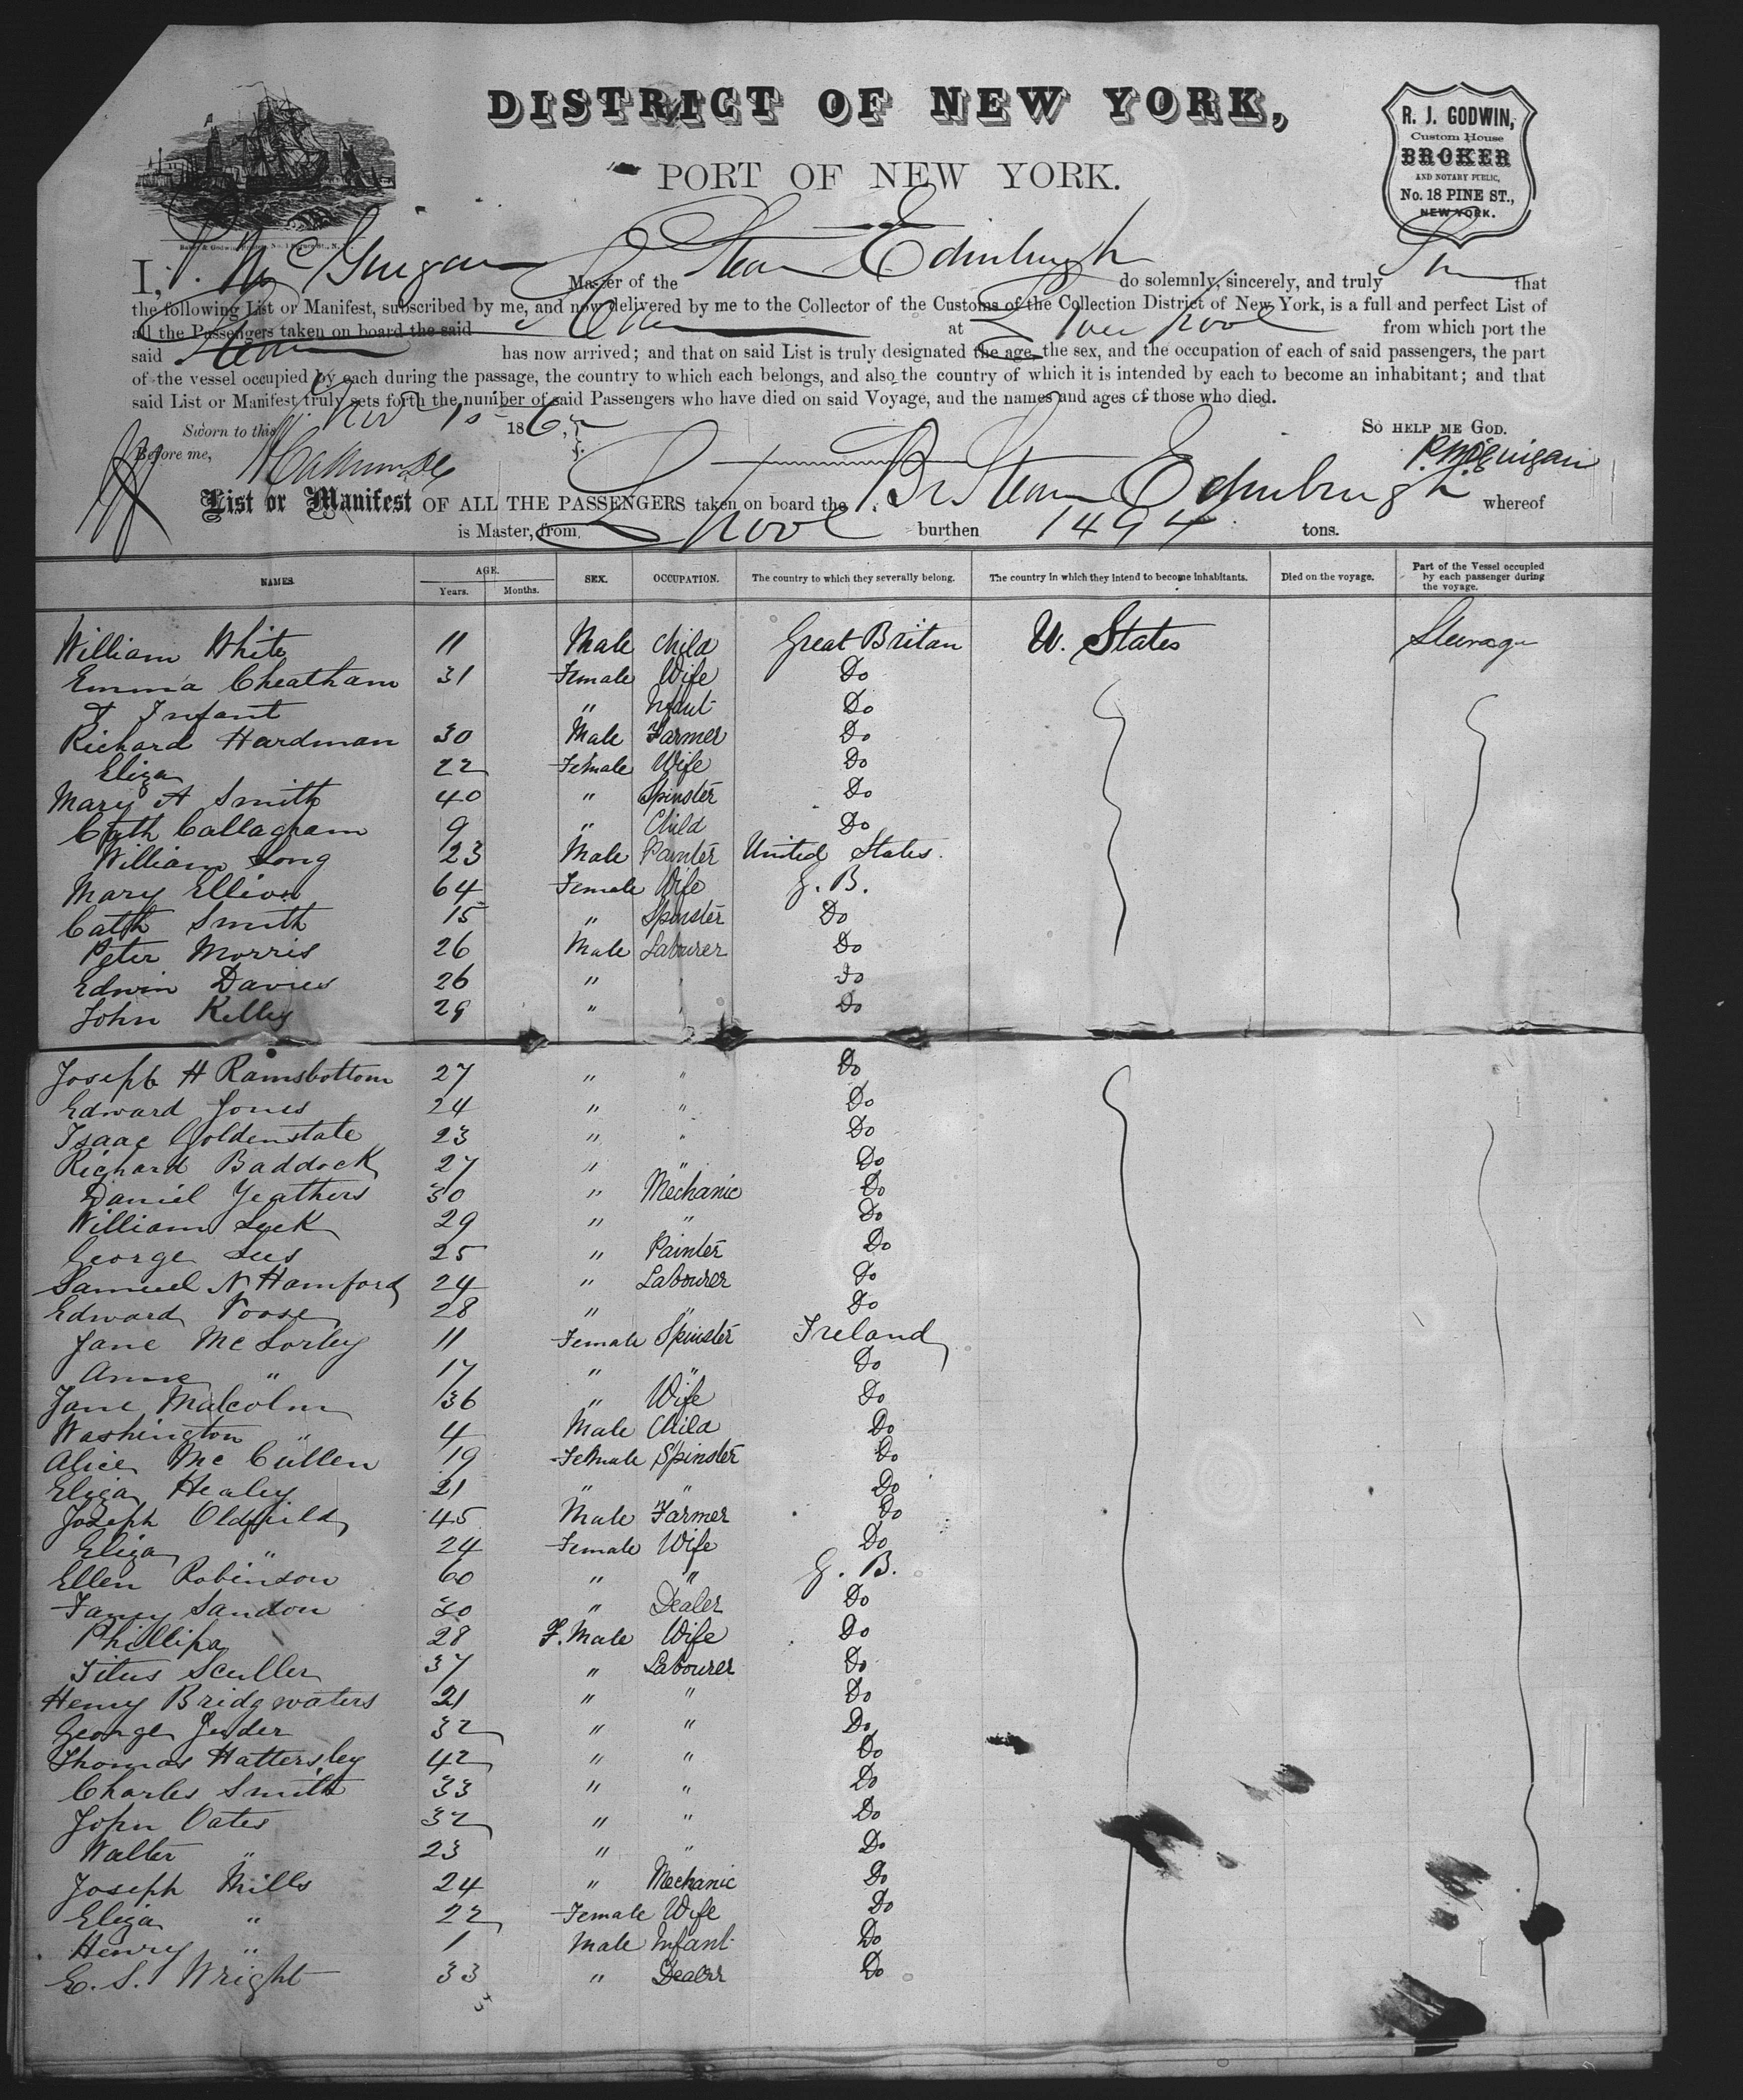 DISTRICT OF NEW YORK,
PORT OF NEW YORK.
R. J. GODWIN,
Custom House
BROKER
AND NOTARY PUBLIC,
No. 18 PINE ST.,
NEW-YORK.
I, P. McGuigan Master of the Steam Edinburgh do solemnly, sincerely, and truly that
the following List or Manifest, subscribed by me, and now delivered by me to the Collector of the Customs of the Collection District of New York, is a full and perfect List of
all the Passengers taken on board the said Steam at Liverpool from which port the
said Steam has now arrived; and that on said List is truly designated the age, the sex, and the occupation of each of said passengers, the part
of the vessel occupied by each during the passage, the country to which each belongs, and also the country of which it is intended by each to become an inhabitant; and that
said List or Manifest truly sets forth the number of said Passengers who have died on said Voyage, and the names and ages of those who died.
Sworn to this Nov 186
So HELP ME GOD.
Before me,
P. McGuigan
List or Manifest OF ALL THE PASSENGERS taken on board the Br Steam Edinburgh whereof
is Master, from Lpool burthen 1494 tons.
NAMES. AGE. Years. Months. SEX. OCCUPATION. The country to which they severally belong. The country in which they intend to become inhabitants. Died on the voyage. Part of the Vessel occupied by each passenger during the voyage.
William White 11 Male Child Great Britan U. States Steerage
Emma Cheatham 31 Female Wife Do
& Infant " Infant Do
Richard Hardman 30 Male Farmer Do
Eliza 22 Female Wife Do
Mary A Smith 40 " Spinster Do
Cath Callagham 9 " Child Do
William Long 23 Male Painter United States.
Mary 64 Female Wife G. B.
Cath Smith 15 " Spinster Do
Peter Morris 26 Male Labourer Do
Edwin Davies 26 " Do
John Kelley 29 " Do
Joseph H Ramsbottom 27 " " Do
Edward Jones 24 " " Do
Isaac Goldenstate 23 " " Do
Richard Baddock 27 " " Do
Daniel Yeathers 30 " Mechanic Do
William Lock 29 " " Do
George Lees 25 " Painter Do
Samuel N Hamford 24 " Labourer Do
Edward 28 " " Do
Jane McSorley 11 Female Spinster Ireland
Anne " 17 " " Do
Jane Malcolm 36 " Wife Do
Washington " 4 Male Child Do
Alice McCullen 19 Female Spinster Do
Eliza Healey 21 " " Do
Joseph Oldfield 45 Male Farmer Do
Eliza " 24 Female Wife Do
Ellen Robinson 60 " " G. B.
Fanny Sandon 30 " Dealer Do
Phillipa 28 F. Male Wife Do
Titus Sculler 37 " Labourer Do
Henry Bridgwaters 21 " " Do
George Juder 32 " " Do
Thomas Hattersley 42 " " Do
Charles Smith 33 " " Do
John Oates 32 " " Do
Walter " 23 " " Do
Joseph Mills 24 " Mechanic Do
Eliza " 22 Female Wife Do
Henry " 1 Male Infant Do
E. S. Wright 33 " Dealer Do